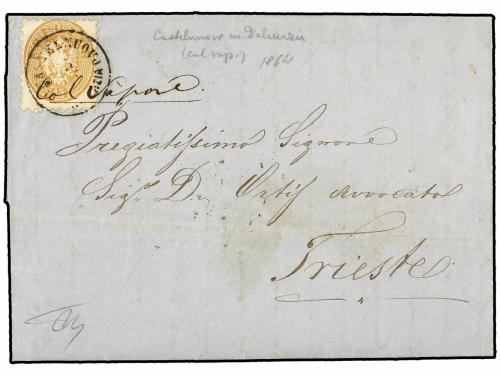 Castelnuovo in Dalmazia
(col vap.) 1864
CASTELNUOVO
Col
Vapore
Pregiatissimo Signore
Sigr. Dr. Ortis Avvocato
Trieste